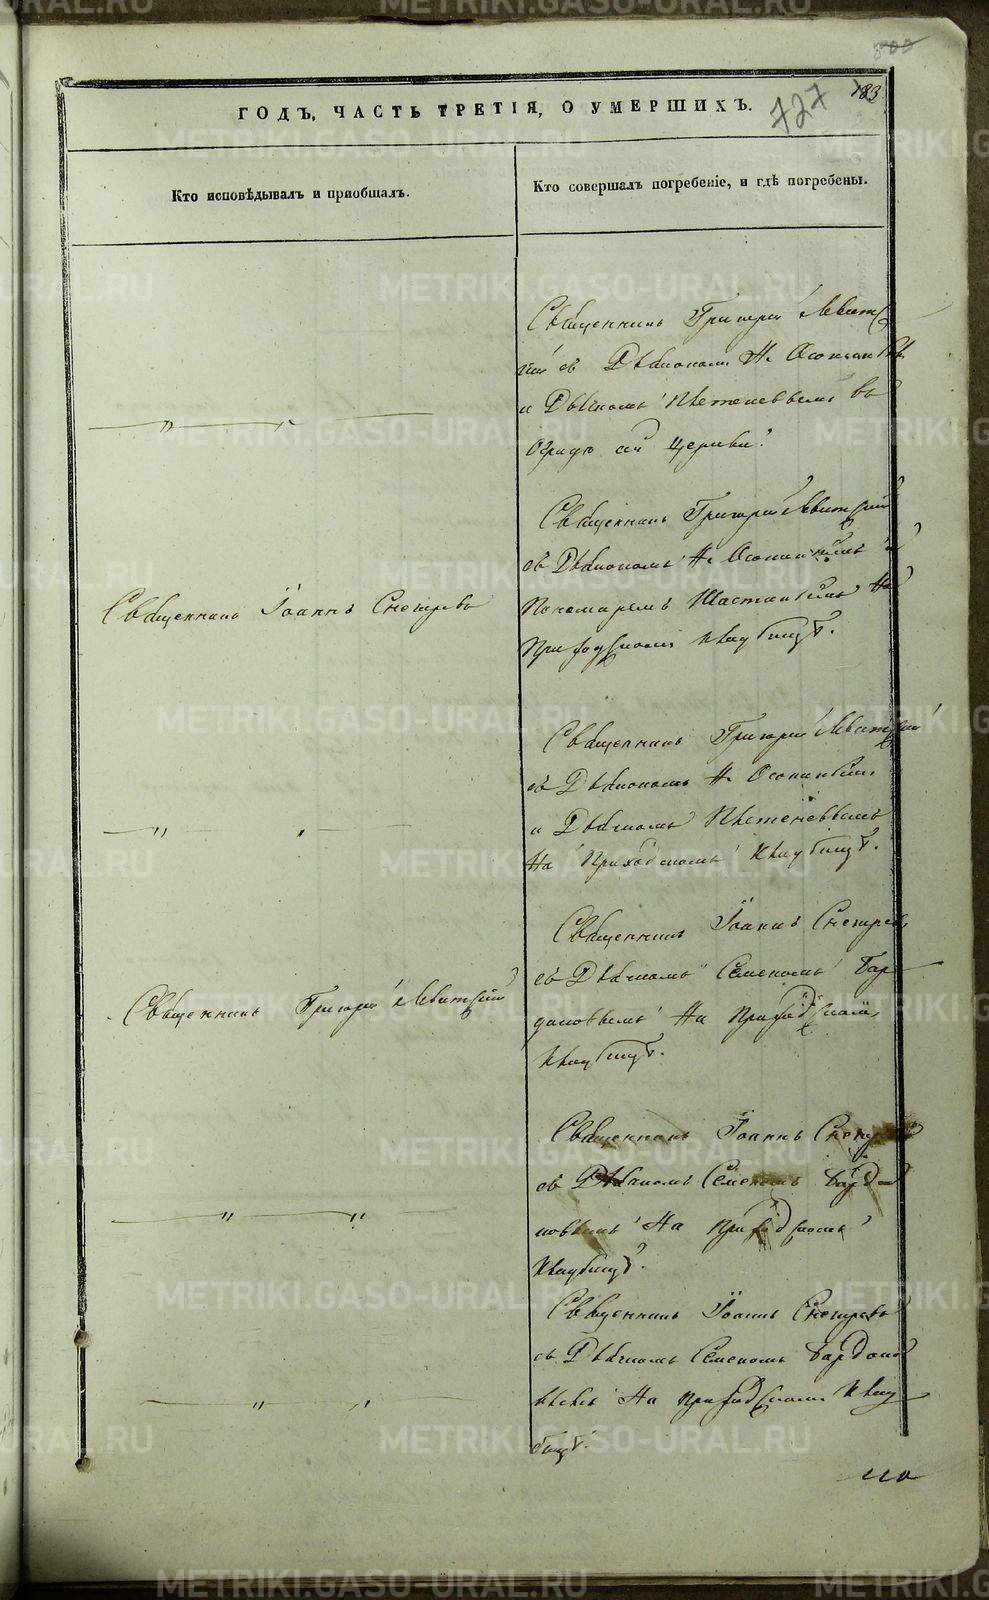 800
727
783
ГОДЪ, ЧАСТЬ ТРЕТІЯ, О УМЕРШИХЪ.
Кто исповѣдывалъ и приобщалъ.
Кто совершалъ погребеніе, и гдѣ погребены.
Священникъ Григорій Левитс
кій съ Діакономъ Н.
и Дьячкомъ въ
Оградѣ сей Церкви.
Священникъ Іоаннъ Снегиревъ
Священникъ Григорій Левитскій
съ Діакономъ Н. и
Пономаремъ на
Приходскомъ Кладбищѣ.
Священникъ Григорій Левитскій
съ Діакономъ Н.
и Дьячкомъ
На Приходскомъ Кладбищѣ.
Священникъ Григорій Левитскій
Священникъ Іоаннъ Снегиревъ
съ Дьячкомъ Семеномъ Бар
доновымъ На Приходскомъ
Кладбищѣ.
Священникъ Іоаннъ Снегиревъ
съ Дьячкомъ Семеномъ Бардо
новымъ На Приходскомъ
Кладбищѣ.
Священникъ Іоаннъ Снегиревъ
съ Дьячкомъ Семеномъ Бардоно
вымъ На Приходскомъ Клад
бищѣ.
METRIKI.GASO-URAL.RU